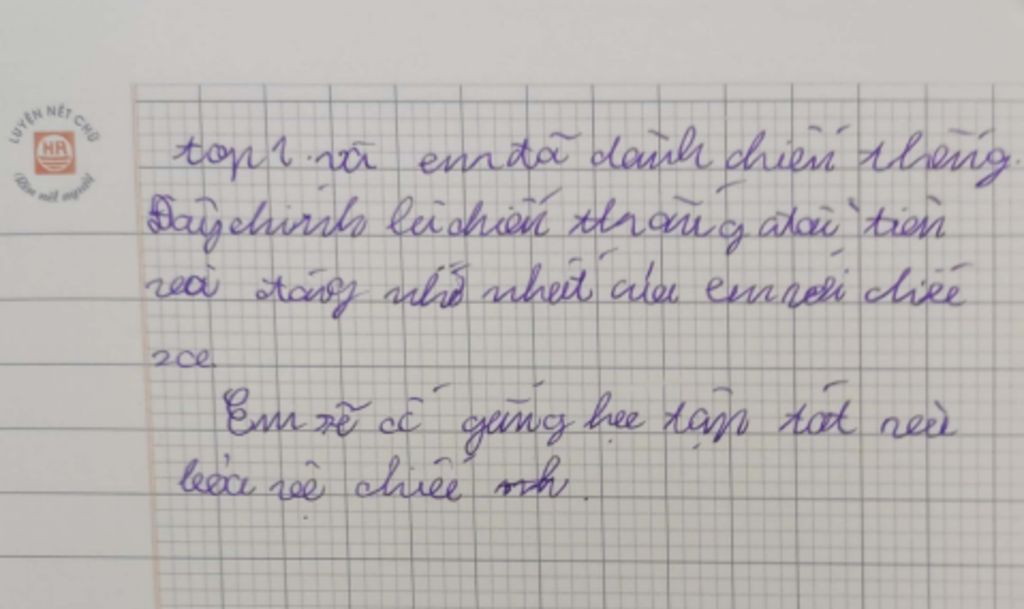 LUYỆN NÉT CHỮ
HR
Rèn nết người
top 1 và em đã dành chiến thắng.
Đây chính là chiến thắng đầu tiên
và đáng nhớ nhất của em với chiếc
xe.
Em sẽ cố gắng học tập tốt và
bảo vệ chiếc